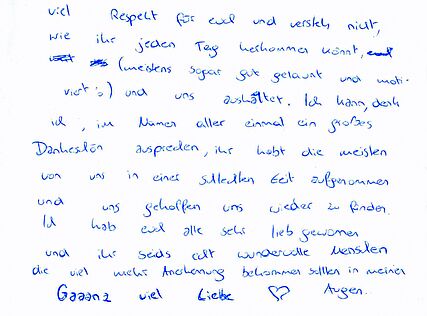 viel Respekt für euch und versteh nicht,
wie ihr jeden Tag herkommen könnt,
(meistens sogar gut gelaunt und moti-
viert :) und uns aushaltet. Ich kann, denk
ich, im Namen aller einmal ein großes
Dankeschön aussprechen, ihr habt die meisten
von uns in einer schlechten Zeit aufgenommen
und uns geholfen uns wieder zu finden.
Ich hab euch alle sehr lieb gewonnen
und ihr seids alle wundervolle Menschen
die viel mehr Anerkennung bekommen sollten in meinen
Gaaanz viel Liebe ♡ Augen..